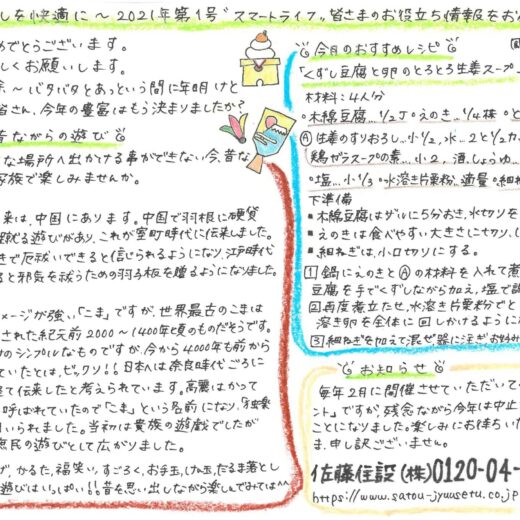 しを快適に～2021年第1号〝スマートライフ〟皆さまのお役立ち情報をお
めでとうございます。
しくお願いします。
～バタバタとあっという間に年明けと
皆さん、今年の豊富はもう決まりましたか?
昔ながらの遊び
な場所へ出かける事ができない今、昔な
家族で楽しみませんか。
来は、中国にあります。中国で羽根に硬貨
蹴る遊びがあり、これが室町時代に伝来しました。
きで厄祓いできると信じられるようになり、江戸時代
ると邪気を祓うための羽子板を贈るようになりました。
メージが強い「こま」ですが、世界最古のこまは
された紀元前2000～1400年頃のものだそうです。
けのシンプルなものですが、今から4000年も前から
ていたとは、ビックリ!!日本へは奈良時代ごろに
経て伝来したと考えられています。高麗はかって
呼ばれていたので「こま」という名前になり、「独楽
いられました。当初は貴族の遊戯でしたが
庶民の遊びとして広がりました。
げ、かるた、福笑い、すごろく、お手玉、けん玉、だるま落とし
遊びはいっぱい!!昔を思い出しながら楽しんでみては^^
今月のおすすめレシピ
「くずし豆腐と卵のとろとろ生姜スープ
材料:4人分
・木綿豆腐…1/2丁・えのき…1/4株・と
Ⓐ(生姜のすりおろし…小1/2、水…2と1/2カ
鶏ガラスープの素…小2、酒、しょうゆ…
・塩…小1/3・水溶き片栗粉…適量・細ね
下準備
・木綿豆腐はザルに5分おき、水切りを
・えのきは食べやすい大きさに切り、
・細ねぎは、小口切りにする。
1 鍋にえのきとⒶの材料を入れて煮
豆腐を手でくずしながら加え、塩で調
2 再度煮立たせ、水溶き片栗粉でと
溶き卵を全体に回しかけるように
3 細ねぎを加えて混ぜ器に注ぎお好み
お知らせ
毎年2月に開催させていただいて
ント」ですが、残念ながら今年は中止
ことになりました。楽しみにお待ちいた
ま、申し訳ございません。
佐藤住設(株)0120-04-
https://www.satou-jyuusetu.co.jp